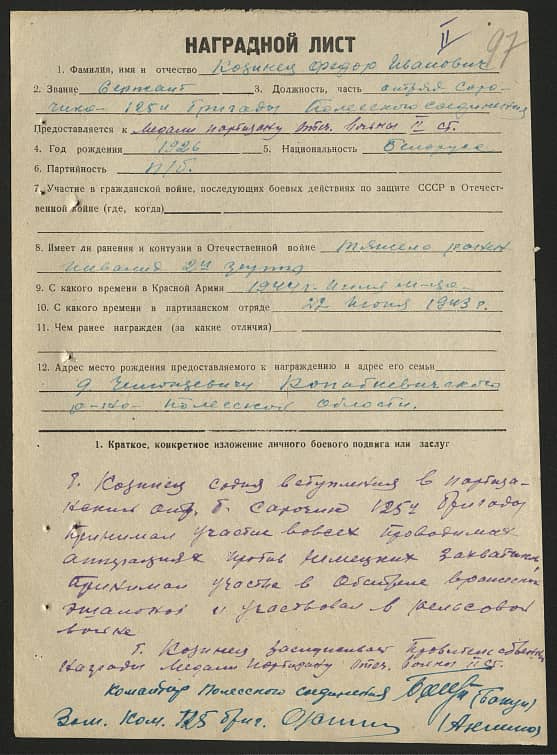 II 97
НАГРАДНОЙ ЛИСТ
1. Фамилия, имя и отчество Козинец Федор Иванович
2. Звание Сержант 3. Должность, часть отряд Соро-
чино - 125й бригады Полесского соединения
Предоставляется к Медали партизану отеч. войны II ст.
4. Год рождения 1926 5. Национальность Белорус
6. Партийность п/б.
7. Участие в гражданской войне, последующих боевых действиях по защите СССР в Отечест-
венной войне (где, когда)
8. Имеет ли ранения и контузии в Отечественной войне тяжело ранен
инвалид 2й группы
9. С какого времени в Красной Армии 1944 г. Июля м-ца
10. С какого времени в партизанском отряде 22 Июня 1943 г.
11. Чем ранее награжден (за какие отличия)
12. Адрес место рождения предоставляемого к награждению и адрес его семьи
д Копаткевичского
р-на Полесской области.
1. Краткое, конкретное изложение личного боевого подвига или заслуг
Т. Козинец со дня вступления в партиза-
нский отр. 125й бригады
принимал участие вовсех проводимых
апирациях против немецких захватчиков
принимал участие в обстреле вражеских
эшалонов и участвовал в рельсовой
войне
Т. Козинец заслуживает Правительственной
награды Медали Партизану отеч. войны II ст.
Командир Полесского соединения
Зам. Ком. 125 бриг.